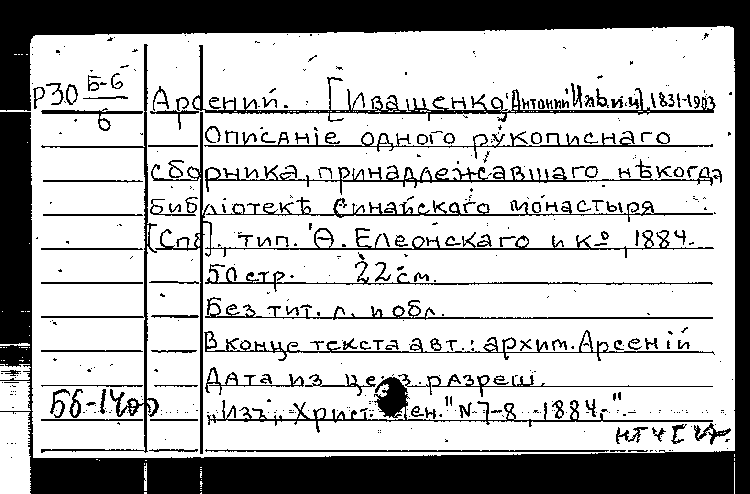 Р30 Б-6/6 Арсений. [Иващенко, Антоний Ильич], 1831-1903
Описаніе одного рукописнаго
сборника, принадлежавшаго нѣкогда
библіотекѣ Синайскаго монастыря
[Спб], тип. Ѳ. Елеонскаго и Ко, 1884.
50 стр. 22 см.
Без тит. л. и обл.
В конце текста авт.: архим. Арсеній
Дата из ценз. разреш.
Бб-1400 „Изъ „Христ. чтен." N 7-8, 1884."